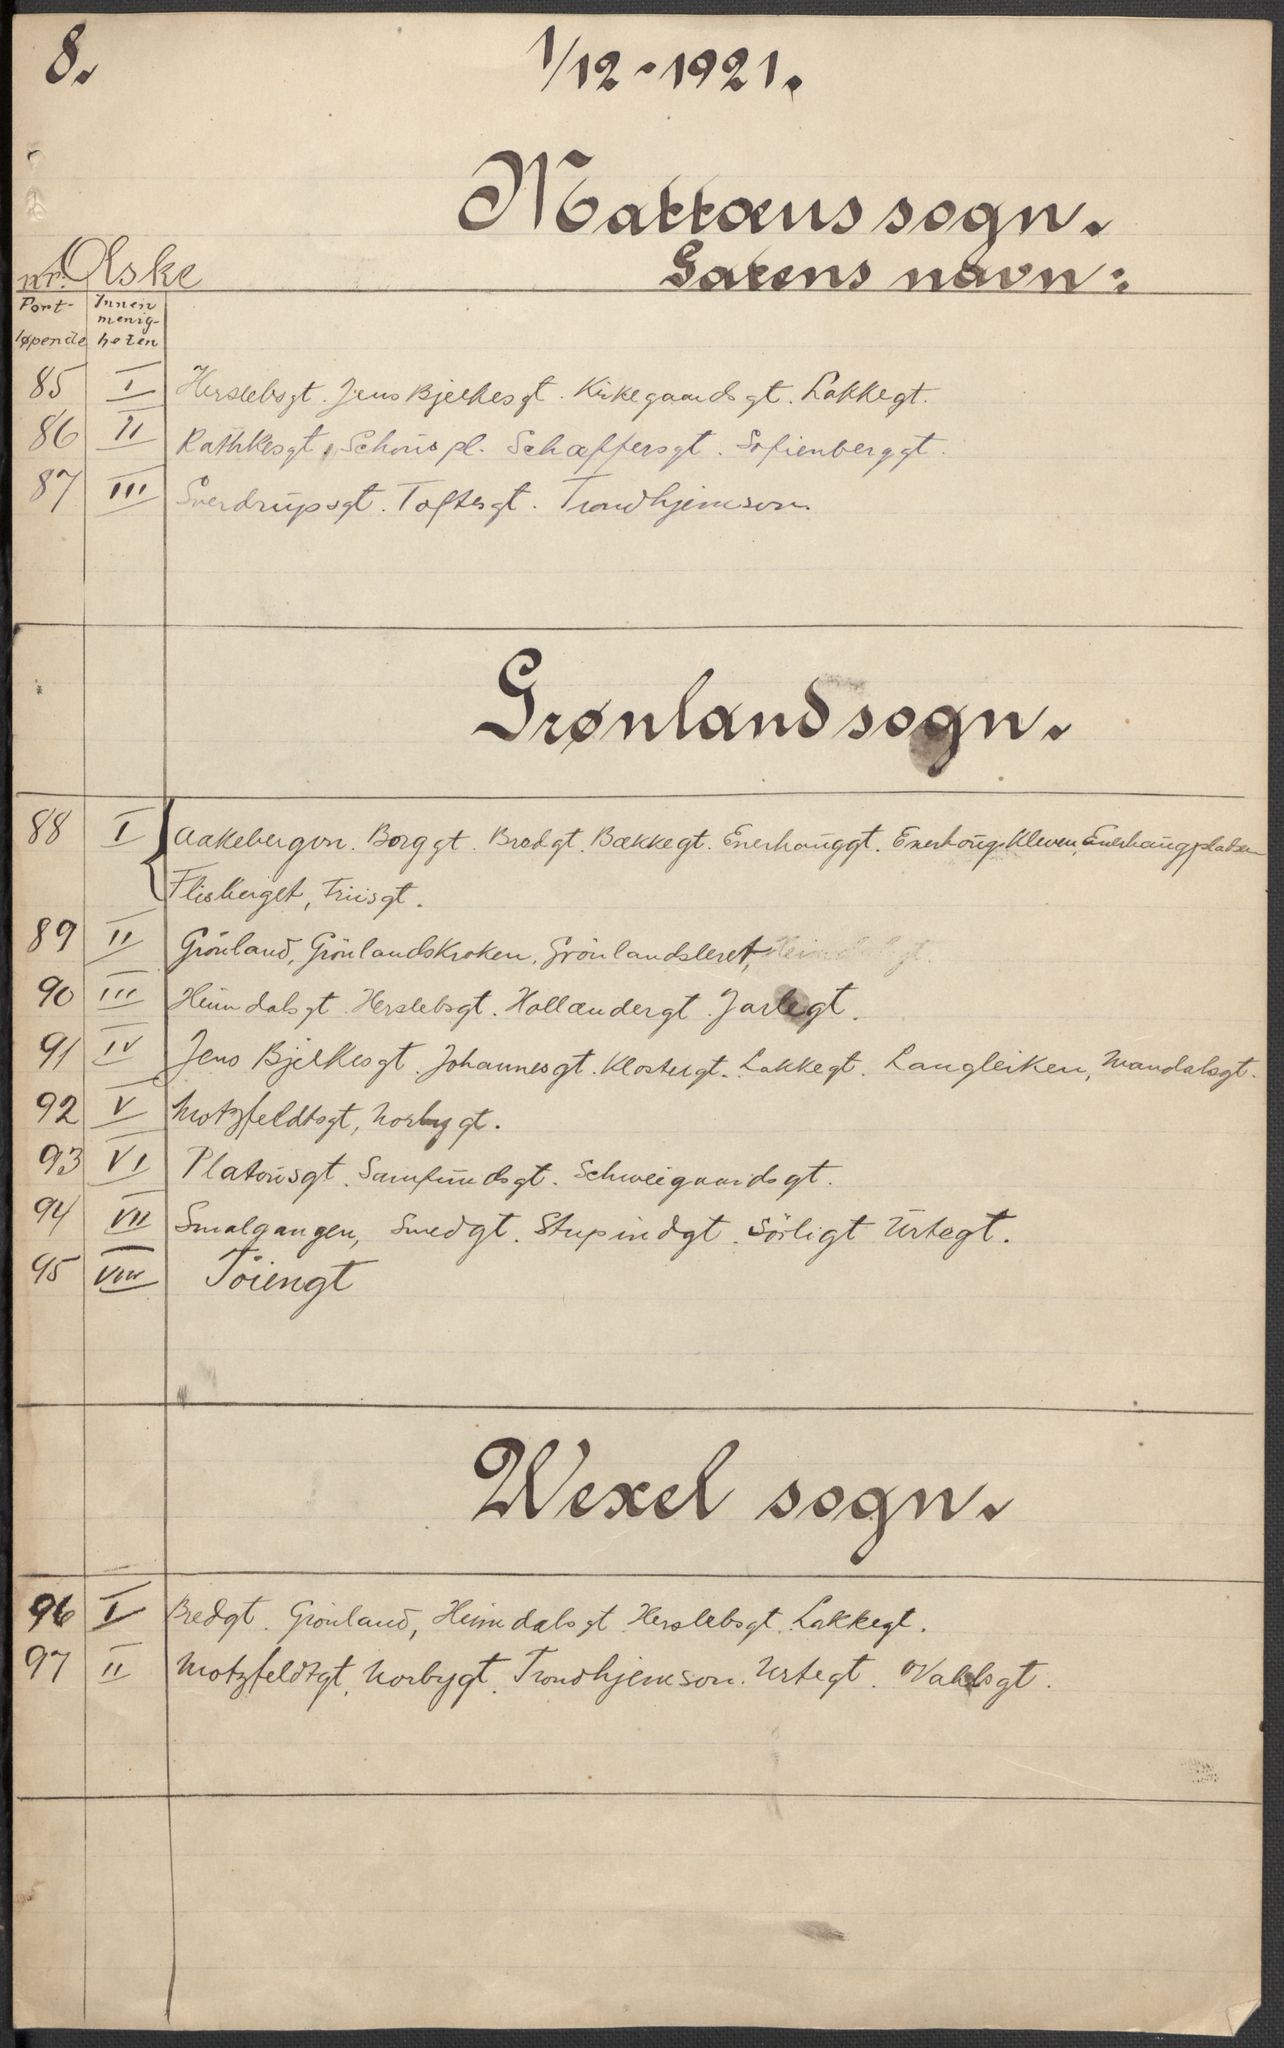 8.
1/12-1921.
Mattæus sogn.
nr. Æske
Gatens navn:
Fort-
løpende
Innen
menig-
heten
85 I Herslebsgt. Jens Bjelkesgt. Kirkegaardsgt. Lakkegt.
86 II Rathkesgt, Schous pl. Schæffersgt. Sofienberggt.
87 III Sverdrupsgt. Toftesgt. Trondhjemsvn.
Grønland sogn.
88 I Aakebergvn. Borggt. Bredgt. Bækkegt. Enerhauggt. Enerhaugkleven, Enerhaugplatsen
Flisberget, Friisgt.
89 II Grönland, Grönlandskroken, Grönlandsleret, Heimdalsgt.
90 III Heimdalsgt. Herslebsgt. Hollændergt. Jarlegt.
91 IV Jens Bjelkesgt. Johannesgt. Klostergt. Lakkegt. Langleiken, Mandalsgt.
92 V Motzfeldtsgt, Norbygt.
93 VI Platousgt. Samfundsgt. Schweigaardsgt.
94 VII Smalgangen, Smedgt. Stupindgt. Sörligt Urtegt.
95 VIII Töiengt
Wexel sogn.
96 I Bredgt. Grönland, Heimdalsgt. Herslebsgt. Lakkegt.
97 II Motzfeldtgt, Norbygt. Trondhjemsvn. Urtegt. Vahlsgt.